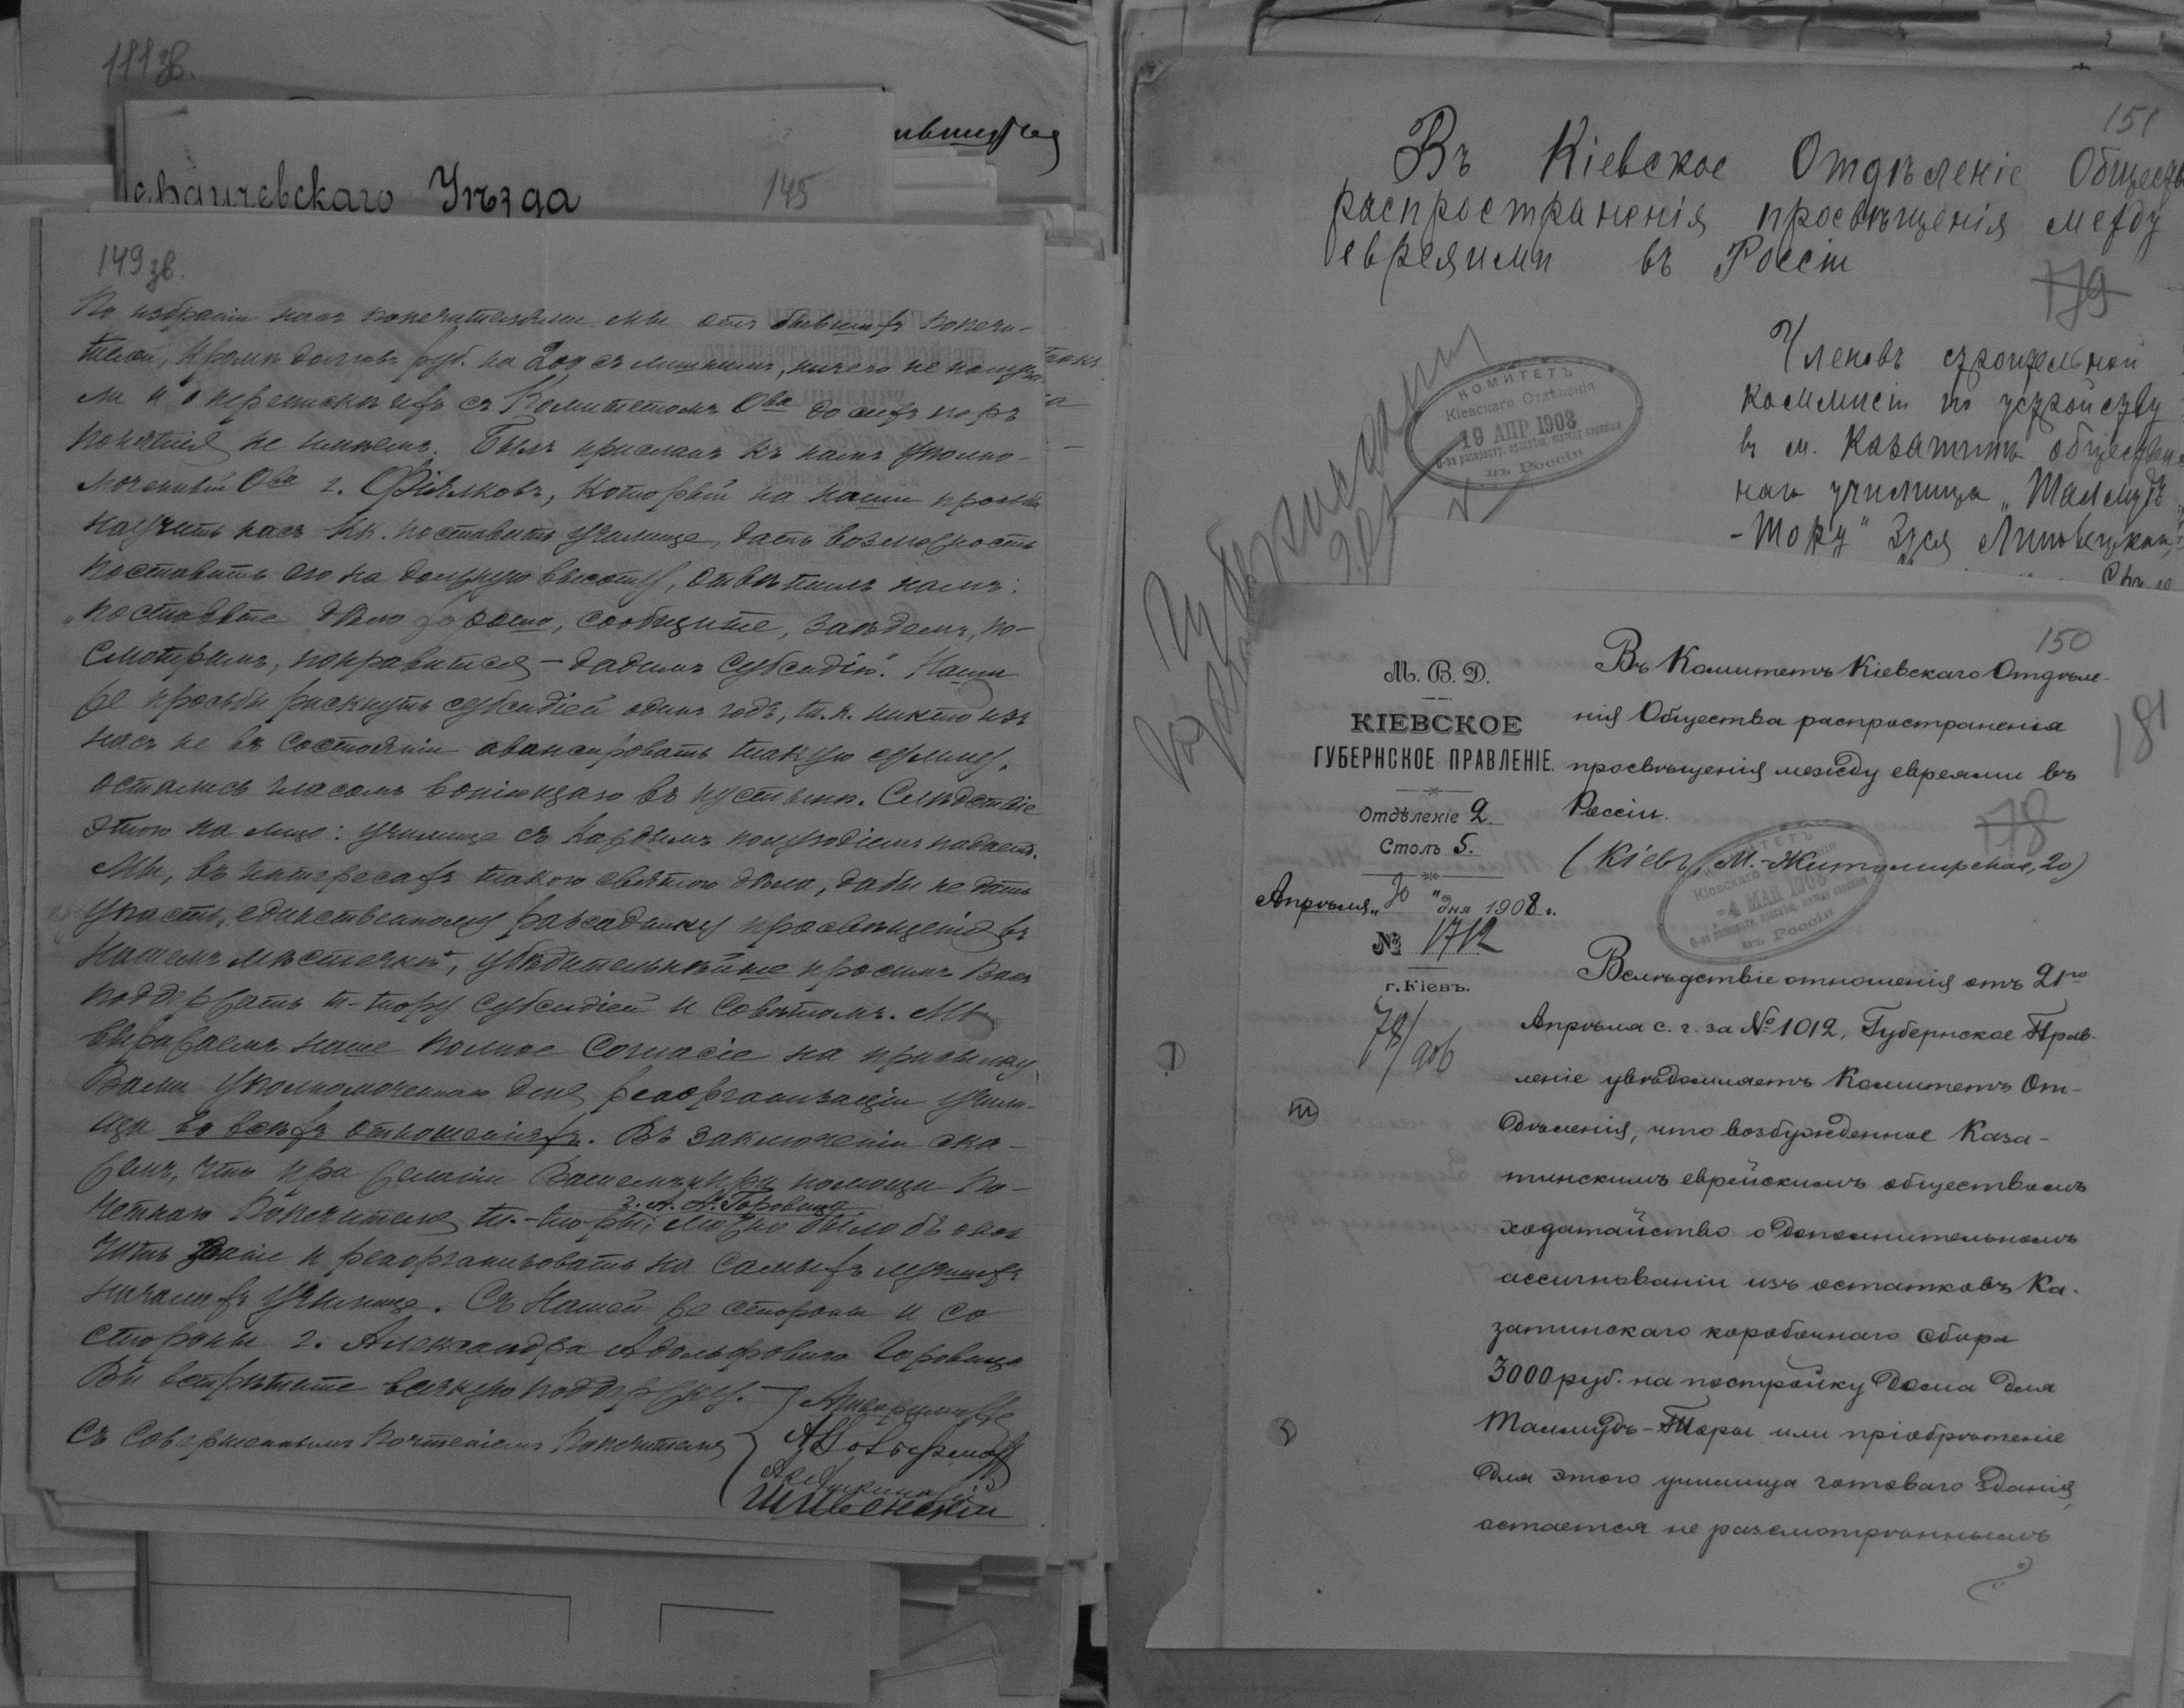 111 зв.
145
149 зв.
По избраніи насъ попечителями мы отъ бывшихъ попечи-
телей, кромѣ долговъ руб. на 200 съ лишнимъ, ничего не получи-
ли и о перепискѣ ихъ съ Комитетомъ О-ва до сихъ поръ
понятія не имѣемъ. Былъ присланъ къ намъ уполно-
моченный О-ва г. Фіялковъ, который на наши просьбы
научить насъ кк. поставить училище, дать возможность
поставить его на должную высоту, отвѣтилъ намъ:
„поставьте дѣло хорошо, сообщите, заѣдемъ, по-
смотримъ, понравится – дадимъ субсидію". Наши
же просьбы рискнуть субсидіей одинъ годъ, т.к. никто изъ
насъ не въ состояніи авансировать такую сумму,
остались гласомъ вопіющаго въ пустынѣ. Слѣдствіе
этого на лицо: училище съ каждымъ полугодіемъ падаетъ.
Мы, въ интересахъ такого святого дѣла, дабы не дать
упасть, единственному разсаднику просвѣщенія въ
нашемъ мѣстечкѣ, убѣдительнѣйше просимъ Васъ
поддержать т-тору субсидіей и совѣтомъ. Мы
выражаемъ наше полное согласіе на присылку
Вами уполномоченнаго для реорганизаціи учили-
ща во всѣхъ отношеніяхъ. Въ заключеніи ска-
жемъ, что при желаніи Вашемъ и при помощи по-
четнаго Попечителя т.-торы, г. А. А. Горовица можно было бъ
зданіе и реорганизовать на самыхъ лучшихъ
началахъ училище. Съ нашей же стороны и со
стороны г. Александра Адольфовича Горовица
Вы встрѣтите всякую поддержку.
Съ совершеннымъ почтеніемъ Попечители
151
Въ Кіевское Отдѣленіе Общества
распространенія просвѣщенія между
евреями въ Россіи
179
Членовъ строительной
коммисіи по устройству
въ м. Казатинѣ обществен-
наго училища „Талмудъ
-Тору" Зуся
КОМИТЕТЪ
Кіевскаго Отдѣленія
19 АПР 1908
О-ва распростр. просвѣщ. между евреями
въ Россіи
150
181
М. В. Д.
КІЕВСКОЕ
ГУБЕРНСКОЕ ПРАВЛЕНІЕ.
Отдѣленіе 2.
Столъ 5.
Апрѣля „30" дня 1908 г.
№ 1712
г. Кіевъ.
78/906
Въ Комитетъ Кіевскаго Отдѣле-
нія Общества распространенія
просвѣщенія между евреями въ
Россіи.
178
(Кіевъ, М.-Житомирская, 20)
КОМИТЕТЪ
Кіевскаго Отдѣленія
-4 МАЯ 1908
О-ва распростр. просвѣщ. между евреями
въ Россіи
Вслѣдствіе отношенія отъ 21го
Апрѣля с. г. за № 1012, Губернское Прав-
леніе увѣдомляетъ Комитетъ От-
дѣленія, что возбужденное Каза-
тинскимъ еврейскимъ обществомъ
ходатайство о дополнительномъ
ассигнованіи изъ остатковъ Ка-
затинскаго коробочнаго сбора
3000 руб. на постройку дома для
Талмудъ-Торы или пріобрѣтеніе
для этого училища готоваго зданія,
остается не разсмотрѣннымъ